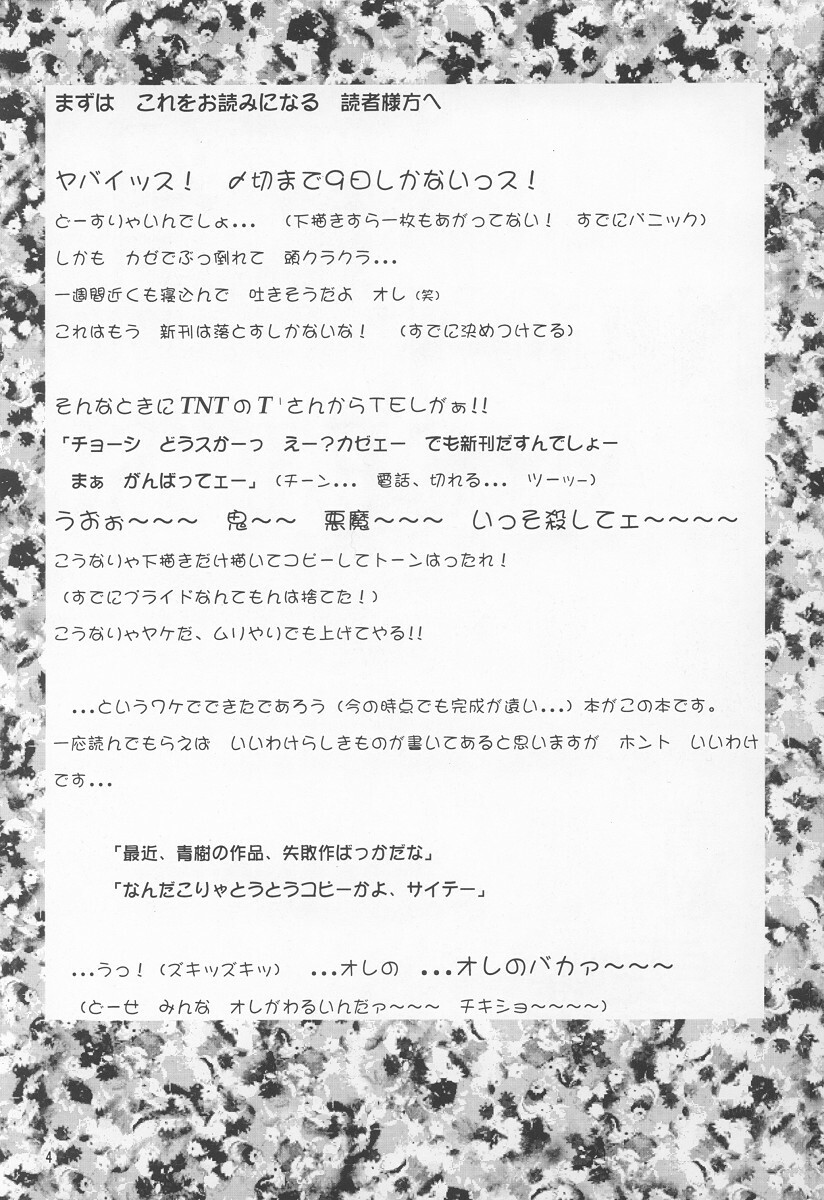 まずは　これをお読みになる　読者様方へ
ヤバイッス！　〆切まで９日しかないっス！
どーすりゃいんでしょ･･･　（下描きすら一枚もあがってない！　すでにパニック）
しかも　カゼでぶっ倒れて　頭クラクラ･･･
一週間近くも寝込んで　吐きそうだよ　オレ（笑）
これはもう　新刊は落とすしかないな！　（すでに決めつけてる）
そんなときにTNTのT'さんからＴＥＬがぁ!!
「チョーシ　どうスかーっ　えー？カゼェー　でも新刊だすんでしょー
まぁ　がんばってェー」（チーン･･･　電話、切れる･･･　ツーッー）
うおぉ～～～　鬼～～　悪魔～～～　いっそ殺してェ～～～～
こうなりゃ下描きだけ描いてコピーしてトーンはったれ！
（すでにプライドなんてもんは捨てた！）
こうなりゃヤケだ、ムリやりでも上げてやる!!
･･･というワケでできたであろう（今の時点でも完成が遠い･･･）本がこの本です。
一応読んでもらえば　いいわけらしきものが書いてあると思いますが　ホント　いいわけ
です･･･
「最近、青樹の作品、失敗作ばっかだな」
「なんだこりゃとうとうコピーかよ、サイテー」
･･･うっ！（ズキッズキッ）　･･･オレの　･･･オレのバカァ～～～
（どーせ　みんな　オレがわるいんだァ～～～　チキショ～～～～）
4